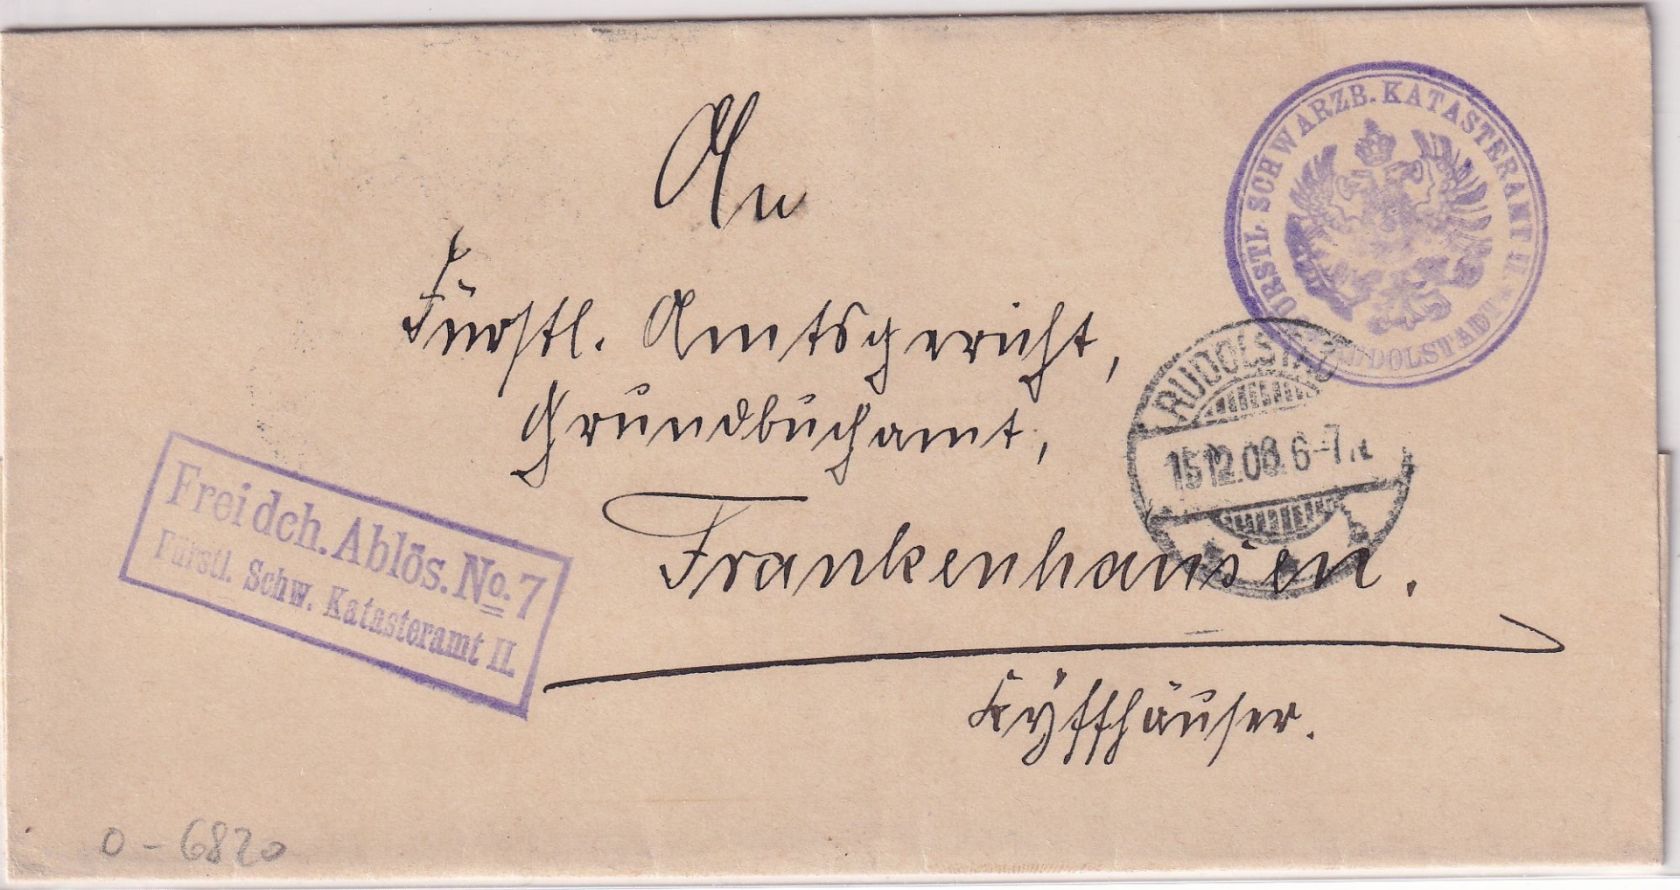 FÜRSTL. SCHWARZB. KATASTERAMT II.
* RUDOLSTADT *
An
Fürstl. Amtsgericht,
Grundbuchamt,
Frankenhausen.
Kyffhäuser.
RUDOLSTADT
15 12.08. 6-7N.
Frei dch. Ablös. No. 7
Fürstl. Schw. Katasteramt II.
O - 6820